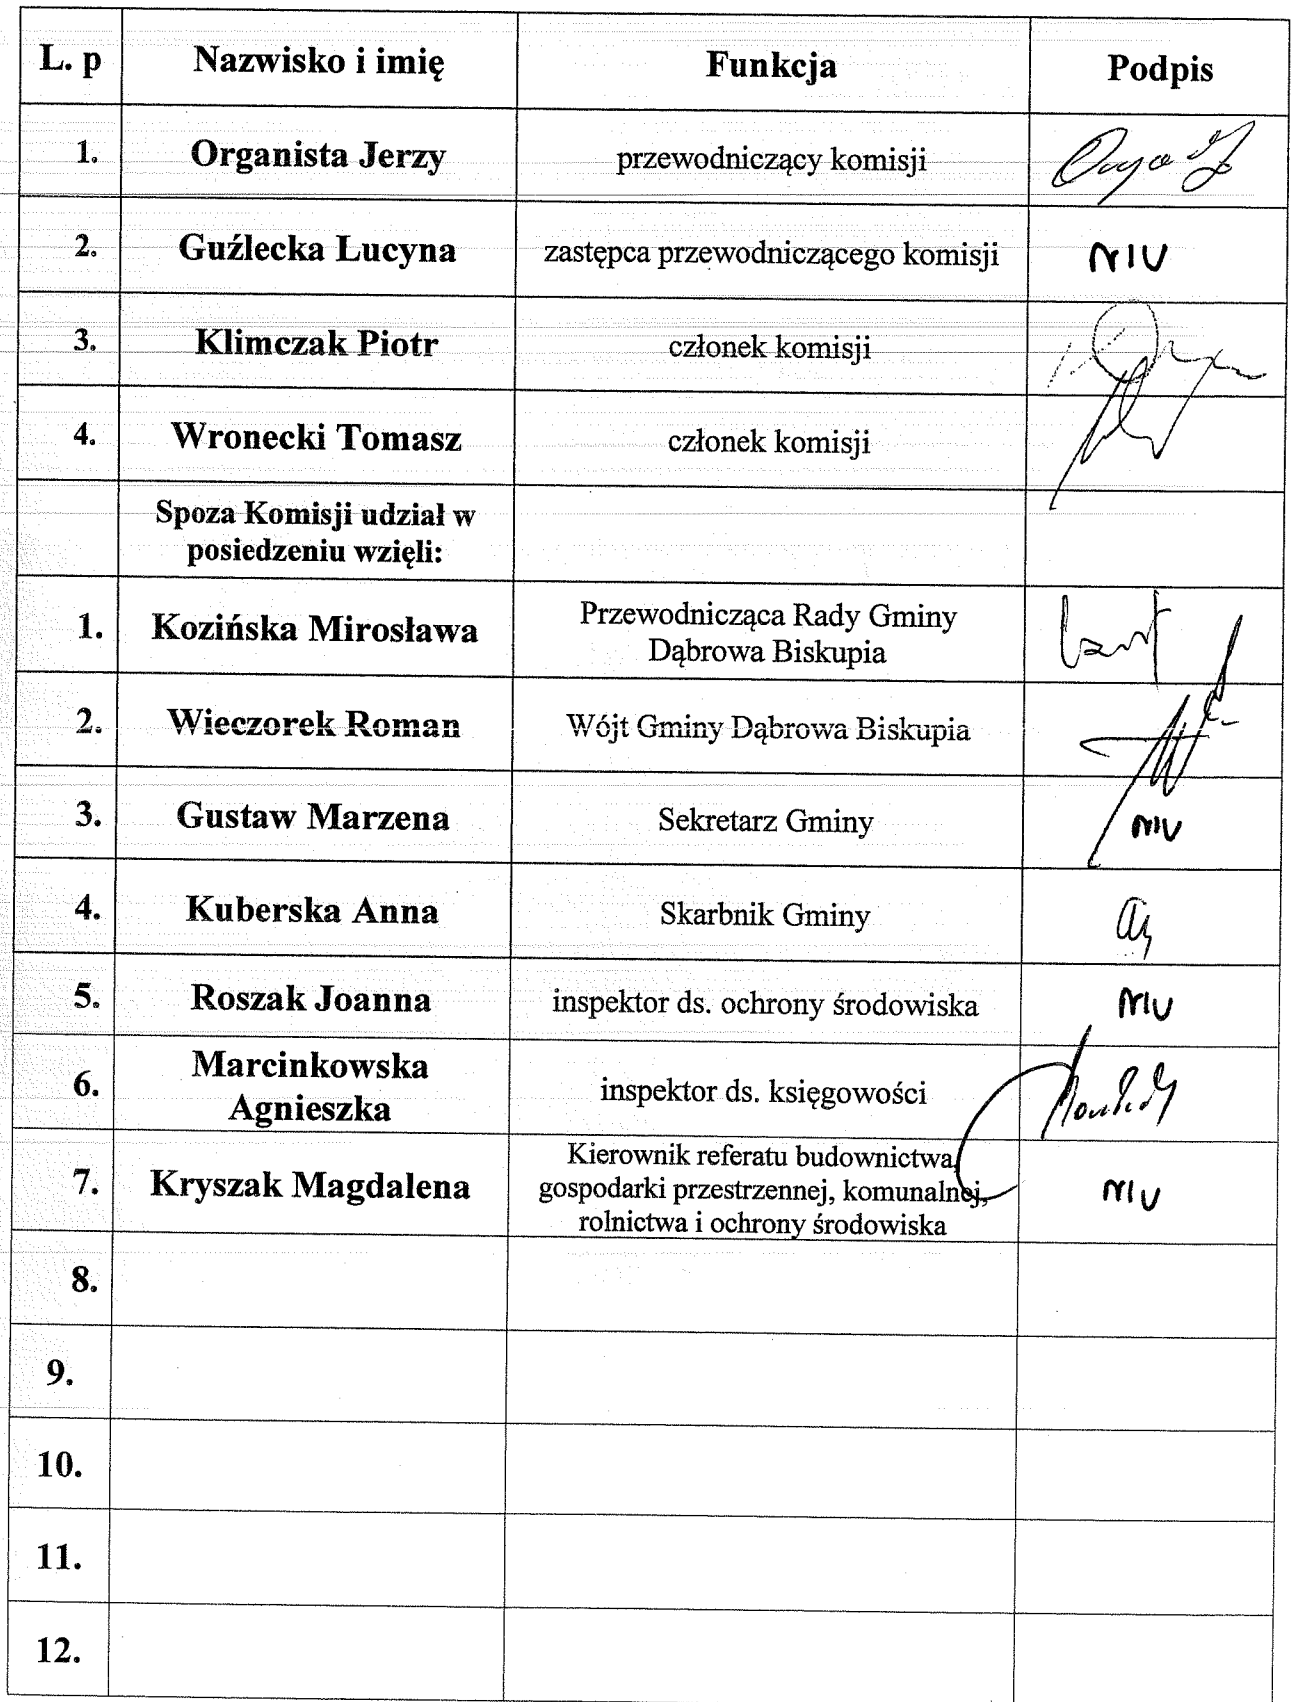 L. p Nazwisko i imię Funkcja Podpis
1. Organista Jerzy przewodniczący komisji
2. Guźlecka Lucyna zastępca przewodniczącego komisji NIU
3. Klimczak Piotr członek komisji
4. Wronecki Tomasz członek komisji
Spoza Komisji udział w
posiedzeniu wzięli:
1. Kozińska Mirosława Przewodnicząca Rady Gminy
Dąbrowa Biskupia
2. Wieczorek Roman Wójt Gminy Dąbrowa Biskupia
3. Gustaw Marzena Sekretarz Gminy NIU
4. Kuberska Anna Skarbnik Gminy
5. Roszak Joanna inspektor ds. ochrony środowiska NIU
6. Marcinkowska
Agnieszka inspektor ds. księgowości
7. Kryszak Magdalena Kierownik referatu budownictwa,
gospodarki przestrzennej, komunalnej,
rolnictwa i ochrony środowiska NIU
8.
9.
10.
11.
12.